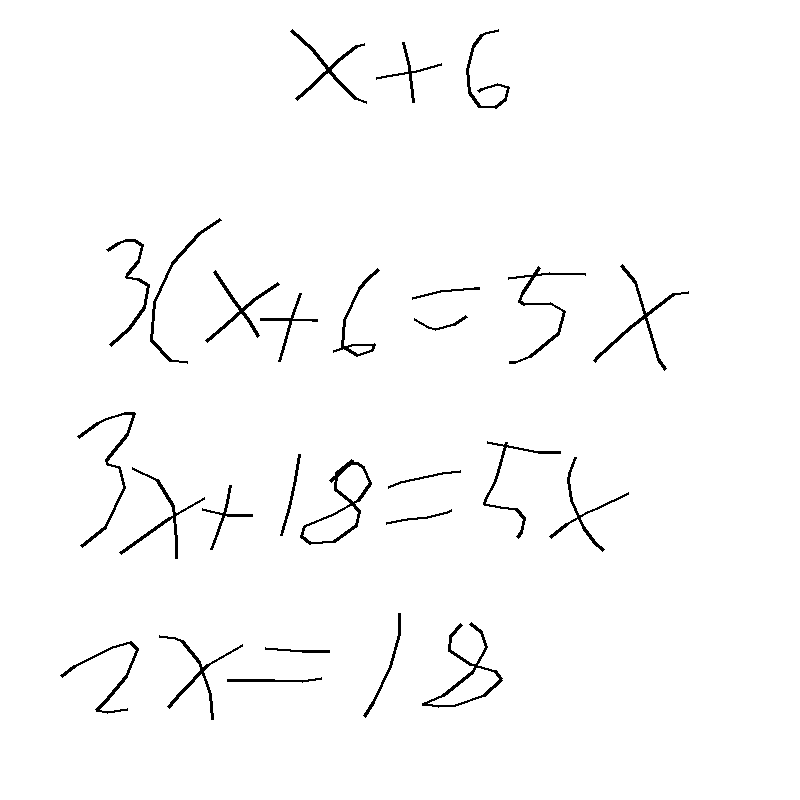 x+6
3(x+6=5x
3x+18=5x
2x=18